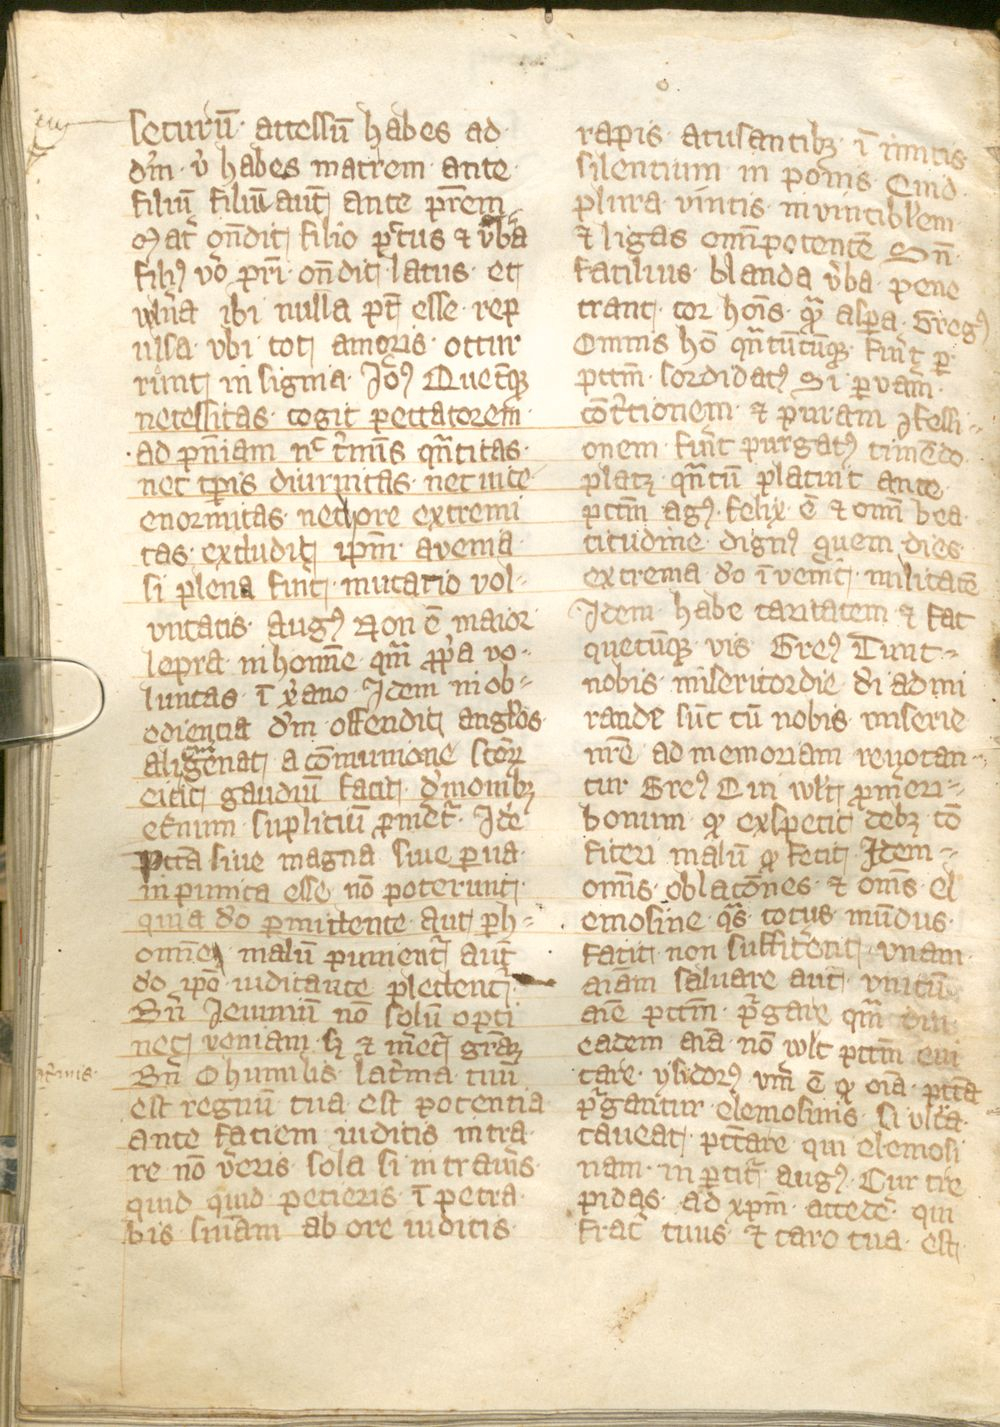 secururū · accessū habes ad
dm̄ · v̄ habes matrem · ante
filiū filiū aut̄ ante pr̄em
Mat̄ on̄dit filio pectus & vbā
filiꝰ vō pr̄i · on̄dit latus · et
ulnā ibi nulla pōt esse · rep
ulsa · vbi tot amoris · occur
runt insignia · Io̅ꝰ Quecūqꝫ
necessitas · cogit peccatorem
ad pn̄iam n̄c cr̄mīs qn̄titas ·
nec tp̄is diurnitas · nec uite
enormitas · nec hore extremi
tas · excludit ip̄m · a venia
si plena fuit · mutatio vol
untatis · Augꝰ Non ē maior
lepra · in homine qm̄ ꝓp̄a vo
luntas · ī xp̄ano Idem in ob
edientia dm̄ offendit angl̄os
aligenat a cōmunione sctōꝝ
eicit gaudiū facit · dm̄onibꝫ
et̄num · supliciū ꝓmet̄ · Idē
Pctā siue magna siue ꝑua ·
inpunita esse nō poterunt ·
quia dō ꝑmittente · aut ꝑ h
omīes malū punient̄ aut̄
dō ip̄o iudicante plectent̄
Bn̄ Ieiuniū nō solū opti
net veniam · sꝫ & m̄et̄ grāꝫ
Bn̄ O humilis · lac̄ma tuū
est regnū tua est potentia
ante faciem iudicis intra
re nō v̄eris · sola si intraūis ·
quid quid petieris · īpetra
bis sn̄iam ab ore iudicis ·
rapis acusantibꝫ · īimicis
silentium in ponis Quid
plura · vincis · invincibl̄em
& ligas om̄ipotentē Sn̄
facilius · blanda v̄ba · pene
trant cor hoīs · qm̄ aspa · Gregꝰ
Omnis hō qn̄tūcūqꝫ · fuīt ꝑ
pctm̄ · sordidatꝰ Si ꝑ vam̄
cōt̄tionem · & puram ꝯfessi
onem · fuīt purgatꝰ timēdo
placꝫ · qn̄tū placuit ante
pctm̄ agꝰ · felix · ē & om̄i bea
titudine · dignꝰ quem · dies
extrema · dō īvenit · militatē
Idem · habe caritatem & fac
quecūqꝫ vis Greꝰ Tunc
nobis · misericordie · di admi
rande sūt cū nobis · miserie
nr̄e · ad memoriam revocan
tur Greꝰ Qui wlt ꝓmeri
bonum qd̄ exspectit debꝫ cō
fiteri · malū qd̄ fecit · Idem
omīs oblacōnes · & om̄s el
emosine qs̄ · totus · mūdus ·
facit non suffic̄ent · vnam
aīam saluare aut · vnicū
aīe pctm̄ p̄gare qm̄
eadem aīa nō wlt pctm̄ eui
tare · ysidorꝰ · vnū ē qd̄ oīa · pctā
p̄gantur elemosinis Si vlt̄a
caveat · pctare qui elemosi
nam · in ꝑtit̄ · Augꝰ Cur tre
pidas · ad xp̄m · accede · qui
frat̄ tuus · & caro tua · est